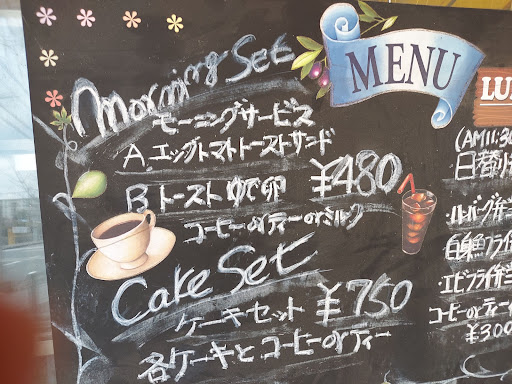 Morning Set
MENU
モーニングサービス
A. エッグトマトトーストサンド
B. トースト ゆで卵 ¥480
コーヒー or ティー or ミルク
Cake Set
ケーキセット ¥750
各ケーキとコーヒー or ティー
LU
(AM11:30
日替り
ハンバーグ弁
白身魚フライ弁
エビフライ弁当
コーヒー or ティー
¥300